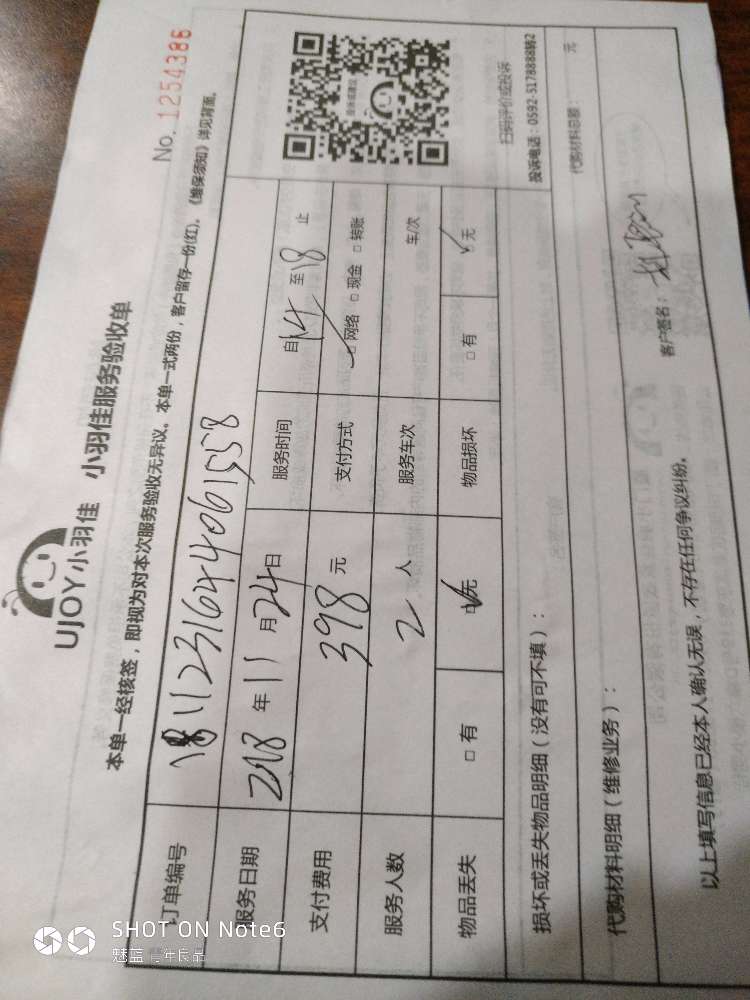 UJOY小羽佳 小羽佳服务验收单
No. 1254386
本单一经核签，即视为对本次服务验收无异议。本单一式两份，客户留存一份(红)。《维保须知》详见背面。
订单编号 1811231644061558
服务日期 2018 年 11 月 24 日 服务时间 自 14 至 18 止
支付费用 398 元 支付方式 □ 网络 □ 现金 □ 转账
服务人数 2 人 服务车次 车/次
物品丢失 □ 有 □ 无 物品损坏 □ 有 □ 无
扫码评价或投诉
投诉电话：0592-5178888转2
损坏或丢失物品明细（没有可不填）：
代购材料明细（维修业务）： 代购材料总额： 元
以上填写信息已经本人确认无误，不存在任何争议纠纷。 客户签名：
SHOT ON Note6
魅蓝 青年良品